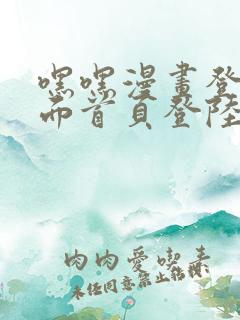 嘿嘿漫畫登
而首頁登陸
肉肉愛喫素
未經同意禁止轉棌